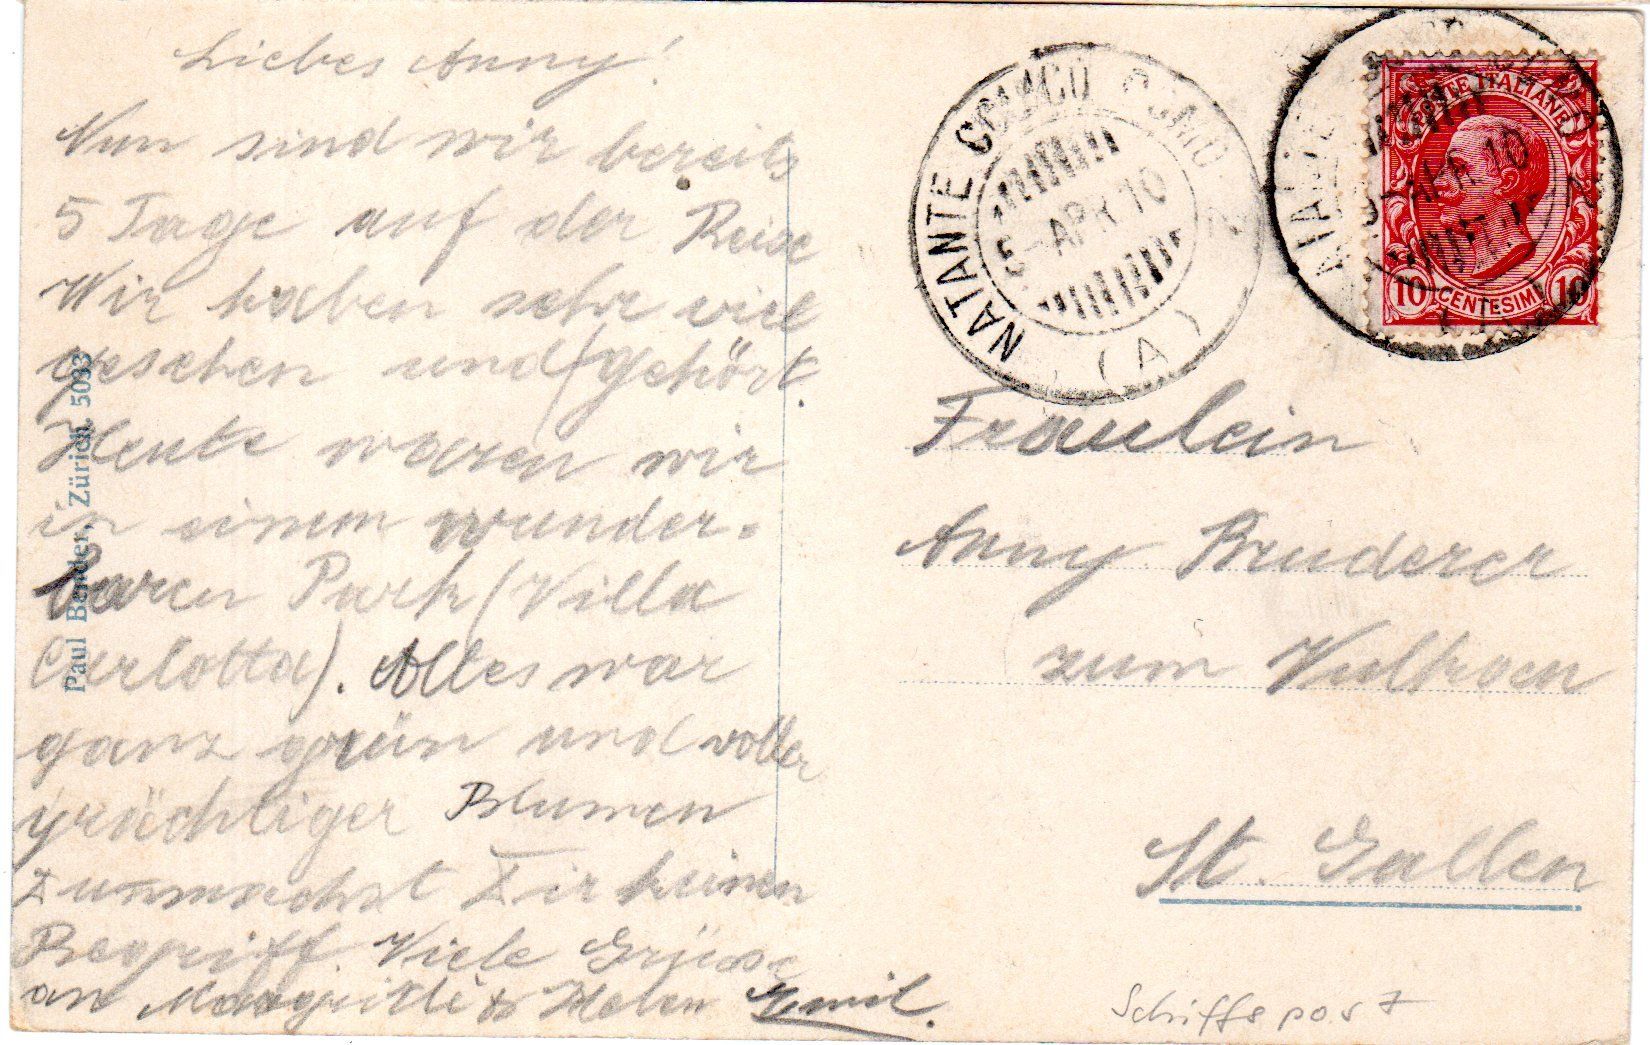 Liebes Anny!
Nun sind wir bereits
5 Tage auf der Reise
Wir haben sehr viel
gesehen und gehört.
Heute waren wir
in einem wunder-
baren Park (Villa
Carlotta). Alles war
ganz grün und voller
prächtiger Blumen
Du machst Dir keinen
Begriff. Viele Grüsse
an Margritli & Helen Emil.
Paul Bender, Zürich, 5033
NATANTE COLICO COMO
5-APR 10
(A)
POSTE ITALIANE
10 CENTESIMI 10
Fräulein
Anny Bruderer
zum
St. Gallen
Schiffspost